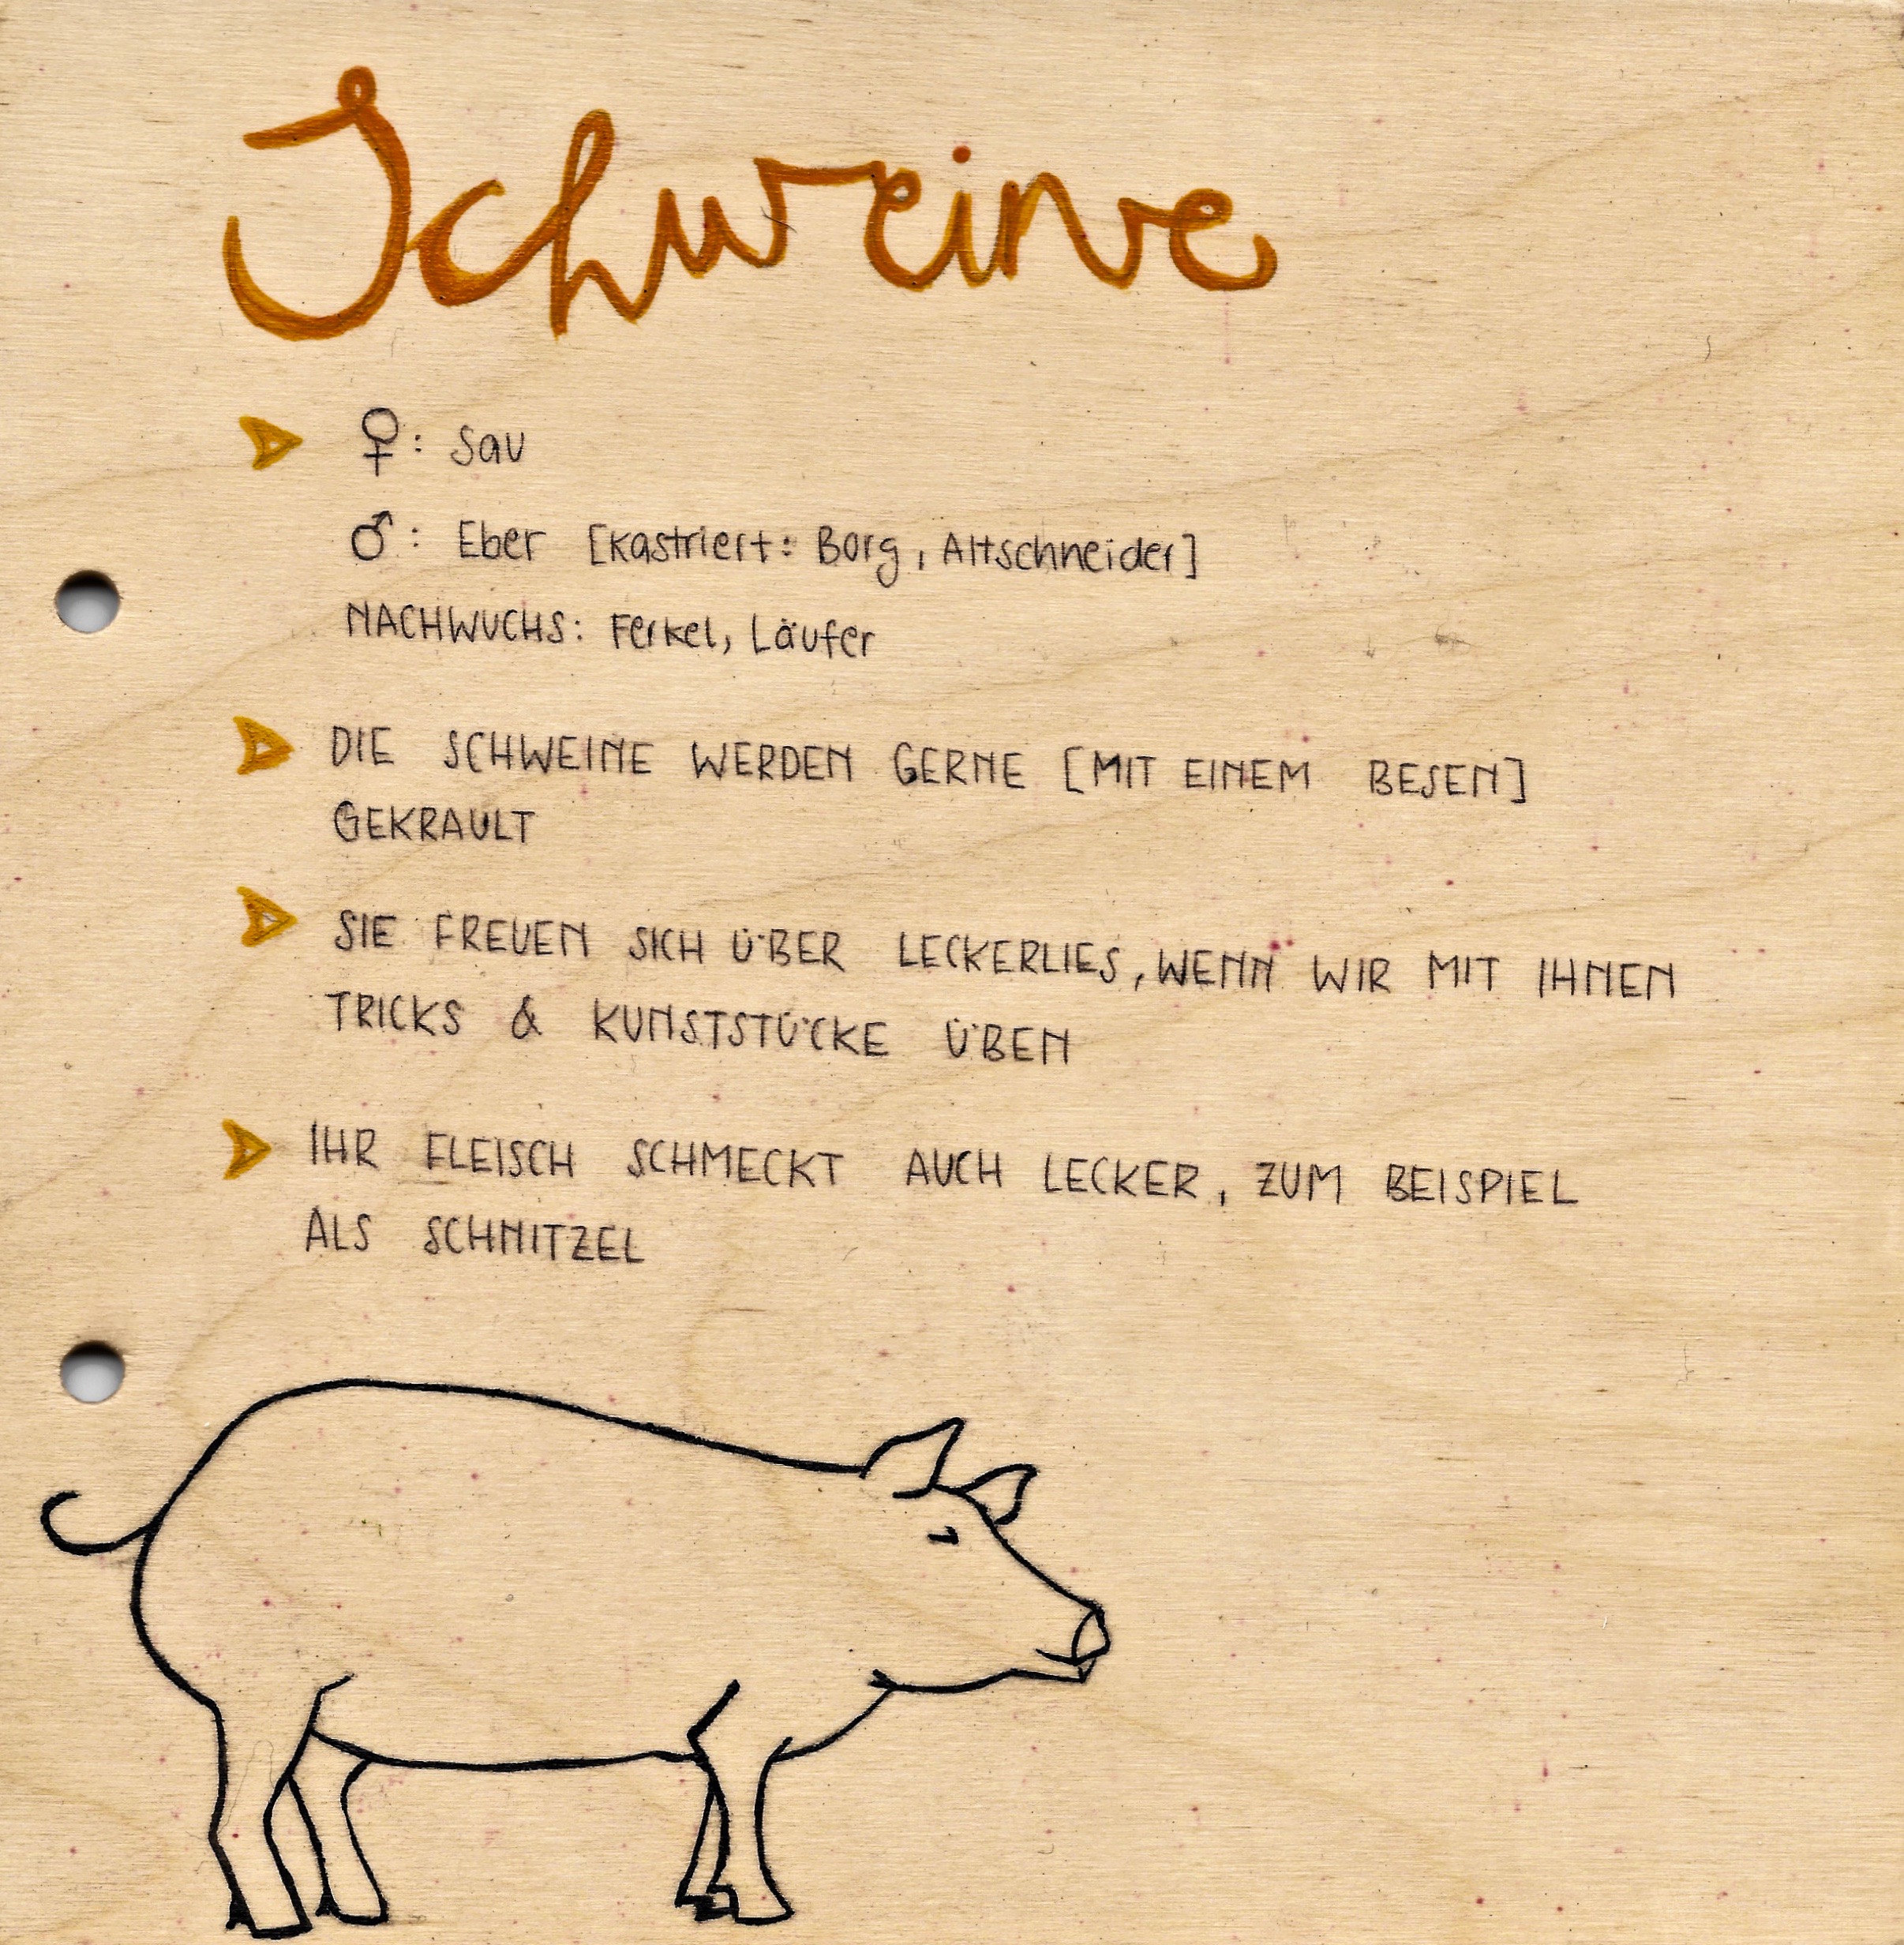 Schweine
♀: Sau
♂: Eber [kastriert: Borg, Altschneider]
NACHWUCHS: Ferkel, Läufer
DIE SCHWEINE WERDEN GERNE [MIT EINEM BESEN]
GEKRAULT
SIE FREUEN SICH ÜBER LECKERLIES, WENN WIR MIT IHNEN
TRICKS & KUNSTSTÜCKE ÜBEN
IHR FLEISCH SCHMECKT AUCH LECKER, ZUM BEISPIEL
ALS SCHNITZEL